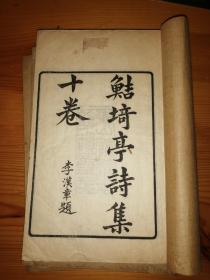 鮚埼亭詩集
十卷
李漢章題